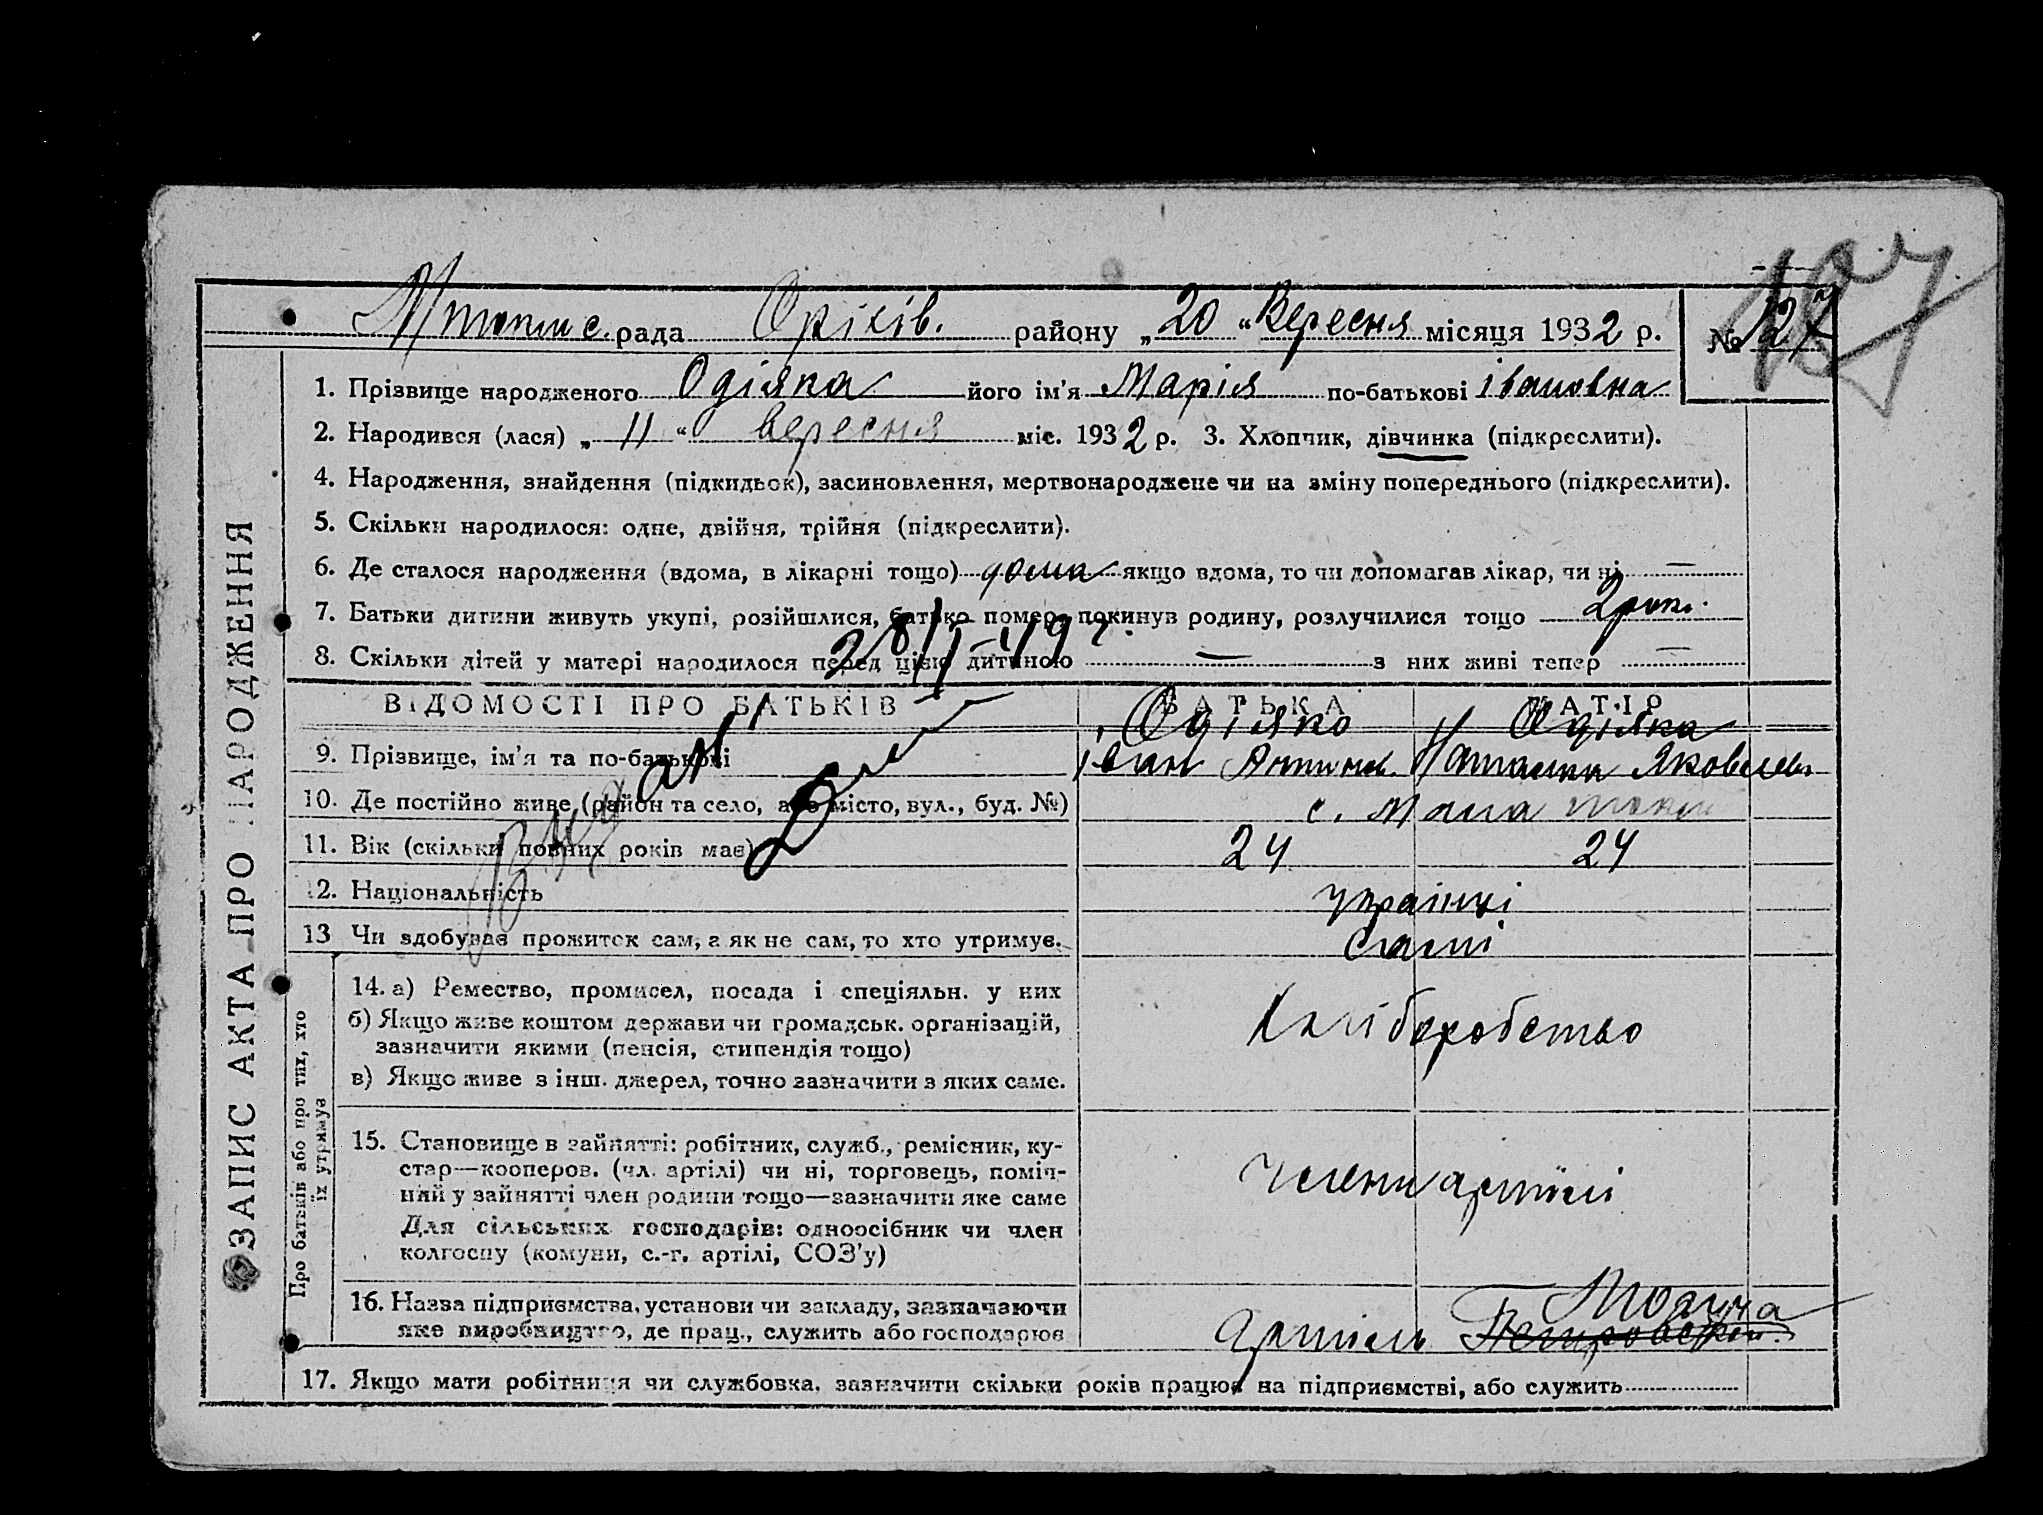 рада Оріхів. району „20“ Вересня місяця 1932 р. № 127
1. Прізвище народженого Одіяка його ім'я Марія по-батькові івановна
2. Народився (лася) „11“ вересня міс. 1932 р. 3. Хлопчик, дівчинка (підкреслити).
4. Народження, знайдення (підкидьок), засиновлення, мертвонароджене чи на зміну попереднього (підкреслити).
5. Скільки народилося: одне, двійня, трійня (підкреслити).
6. Де сталося народження (вдома, в лікарні тощо) дома якщо вдома, то чи допомагав лікар, чи ні —
7. Батьки дитини живуть укупі, розійшлися, батько помер, покинув родину, розлучилися тощо
8. Скільки дітей у матері народилося перед цією дитиною — з них живі тепер —
ВІДОМОСТІ ПРО БАТЬКІВ БАТЬКА МАТІР
Одіяко Одіяка
9. Прізвище, ім'я та по-батькові іван
10. Де постійно живе (район та село, або місто, вул., буд. №) с. Мала
11. Вік (скільки повних років має) 24 24
12. Національність українці
13 Чи здобуває прожиток сам, а як не сам, то хто утримує. Самі
14. а) Ремество, промисел, посада і спеціяльн. у них
б) Якщо живе коштом держави чи громадськ. організацій,
зазначити якими (пенсія, стипендія тощо)
Хліборобство
в) Якщо живе з інш. джерел, точно зазначити з яких саме.
15. Становище в зайнятті: робітник, служб., ремісник, ку-
стар—кооперов. (чл. артілі) чи ні, торговець, поміч-
ний у зайнятті член родини тощо—зазначити яке саме
члени артілі
Для сільських господарів: одноосібник чи член
колгоспу (комуни, с.-г. артілі, СОЗ'у)
16. Назва підприємства, установи чи закладу, зазначаючи
яке виробництво, де прац., служить або господарює Артіль Петровськ.
17. Якщо мати робітниця чи службовка, зазначити скільки років працює на підприємстві, або служить
ЗАПИС АКТА ПРО НАРОДЖЕННЯ
Про батьків або про тих, хто
їх утримує